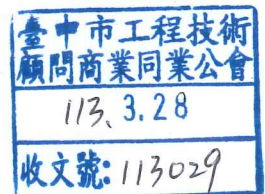 臺中市工程技術
顧問商業同業公會
113. 3.28
收文號:113029